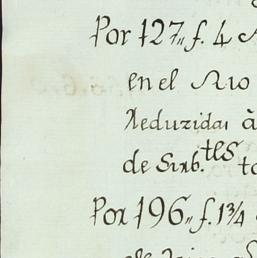 Por 127,, f. 4
en el Rio
Reduzidas à
de Sinb.tes to
Por 196,, f. 1¾